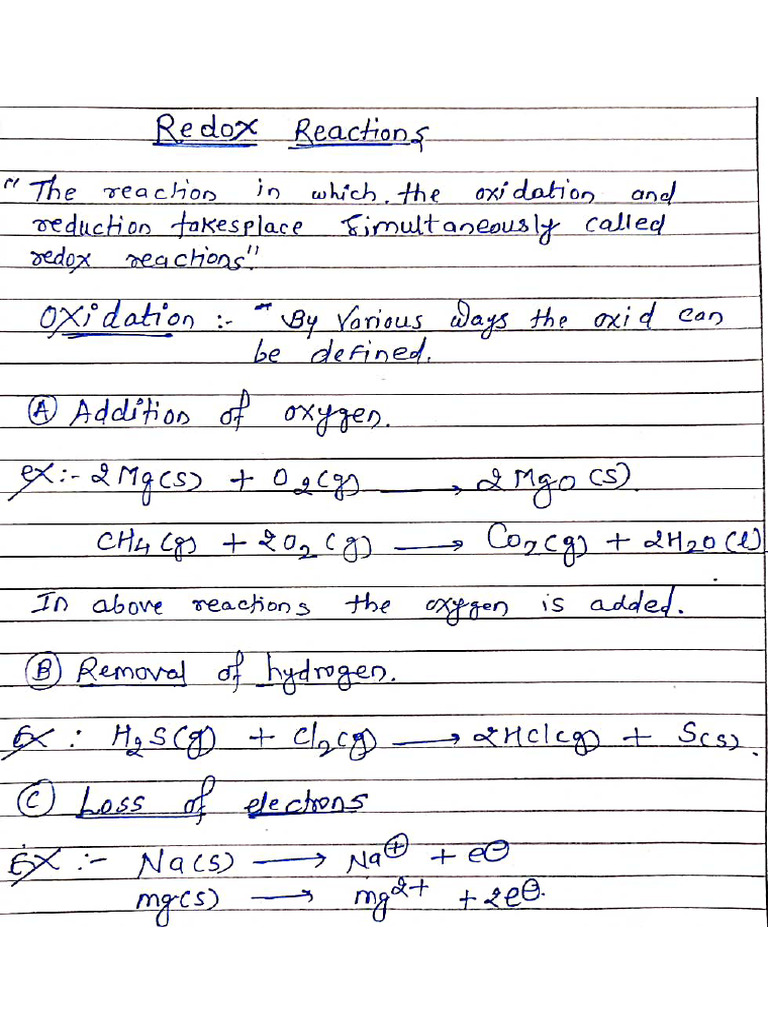 Redox Reactions
"The reaction in which the oxidation and
reduction takesplace simultaneously called
redox reactions"
Oxidation :- - By Various Ways the oxid can
be defined.
Ⓐ Addition of oxygen.
Ex :- 2Mg(s) + O2(g) ⟶ 2MgO(s)
CH4(g) + 2O2(g) ⟶ CO2(g) + 2H2O(l)
In above reactions the oxygen is added.
Ⓑ Removal of hydrogen.
Ex : H2S(g) + Cl2(g) ⟶ 2HCl(g) + S(s).
Ⓒ Loss of electrons
Ex :- Na(s) ⟶ Na⊕ + e⊖
mg(s) ⟶ mg2+ + 2e⊖.